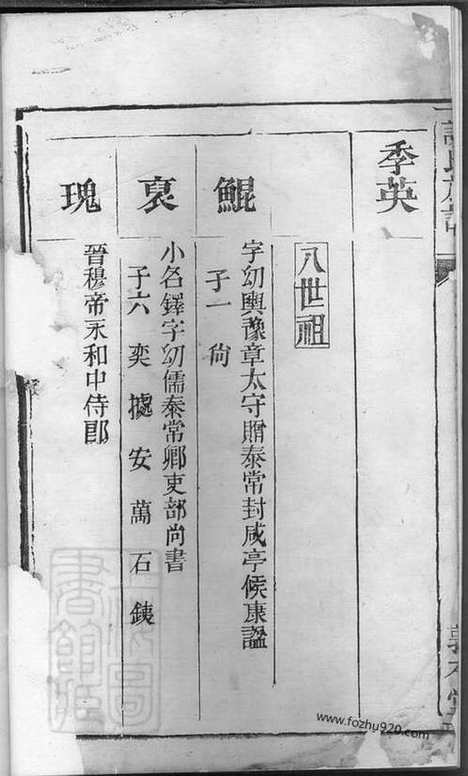 季英
八世祖
鯤
字幼輿豫章太守贈泰常封咸亭候康謚
子一 尙
裒
小名鐸字幼儒泰常卿吏部尚書
子六 奕 據 安 萬 石 銕
瑰
晉穆帝永和中侍郎
www.fozhu920.com